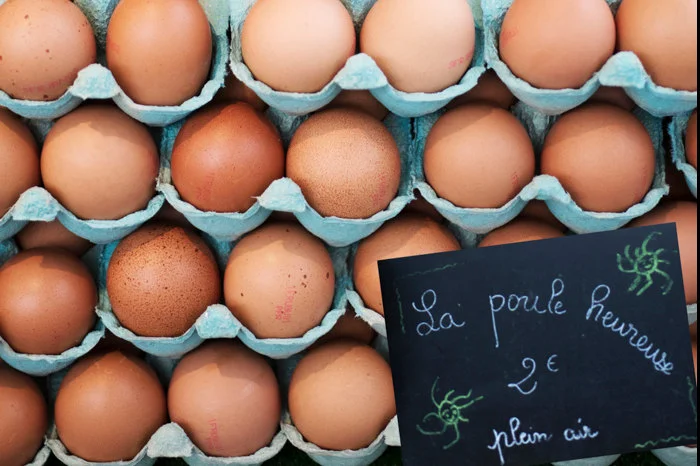 La poule heureuse
2€
plein air